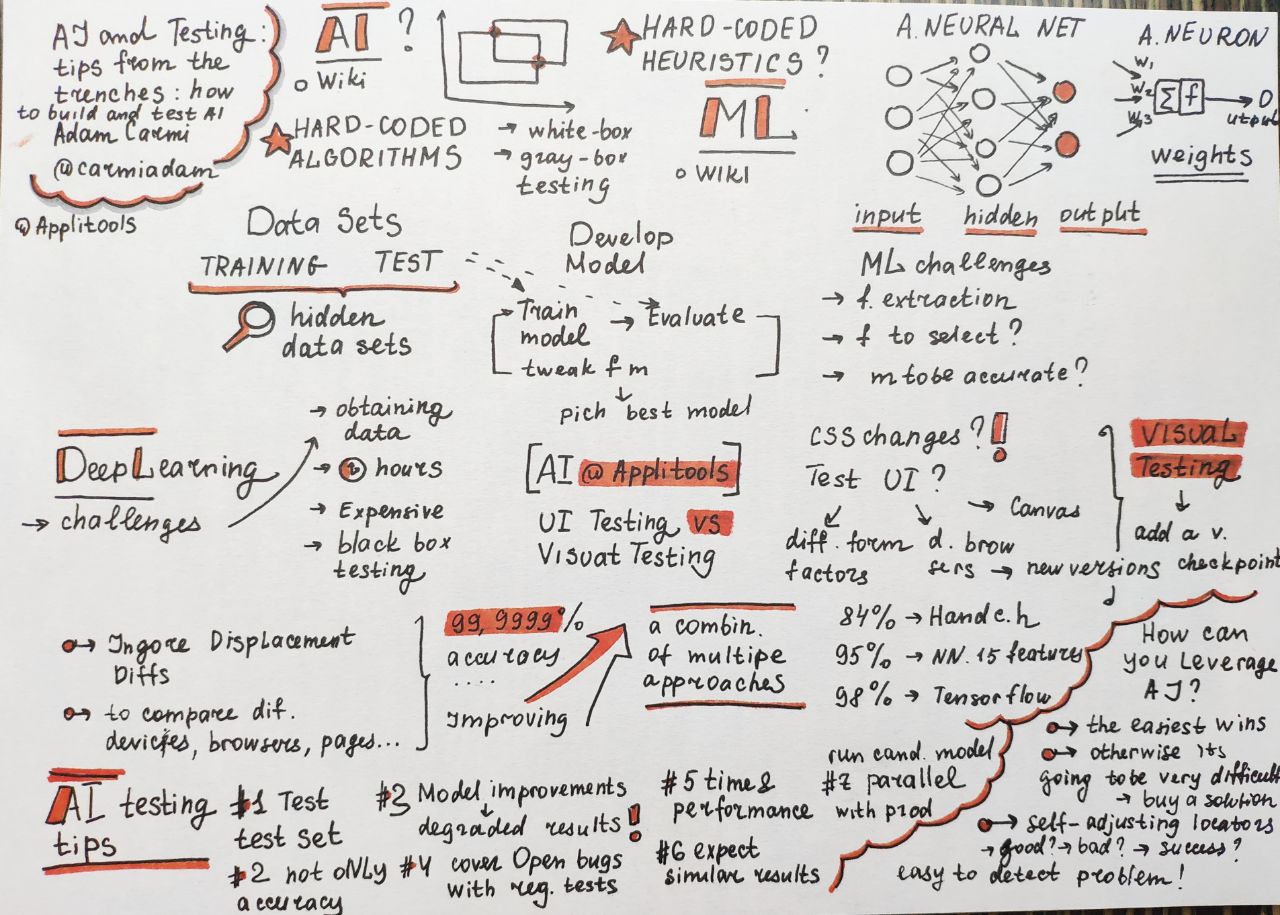 AI and Testing:
tips from the
trenches: how
to build and test AI
Adam Carmi
@carmiadam
@Applitools
AI ?
Wiki
HARD-CODED
ALGORITHMS
→ white-box
→ gray-box
testing
HARD-CODED
HEURISTICS?
ML
WIKI
A. NEURAL NET
input hidden output
A. NEURON
W1
W2
W3
Σ f
Output
weights
Data Sets
TRAINING TEST
hidden
data sets
Develop
Model
Train
model
→ Evaluate
tweak f m
pich best model
ML challenges
→ f. extraction
→ f to select?
→ m tobe accurate?
DeepLearning
→ challenges
→ obtaining
data
→ hours
→ Expensive
→ black box
testing
[AI @Applitools]
UI Testing VS
Visuat Testing
CSS changes?!
Test UI?
→ Canvas
diff. form
factors
d. brow
sers → new versions
Visual
Testing
add a v.
checkpoint
Ingore Displacement
Diffs
to compare dif.
devicjes, browsers, pages...
99,9999%
accuracy
....
Improving
a combin.
of multipe
approaches
84% → Hand c.h
95% → NN. 15 features
98% → Tensorflow
How can
you Leverage
AI?
the easiest wins
otherwise its
going tobe very difficult
→ buy a solution
self-adjusting locators
→ good? → bad? → success?
easy to detect problem!
AI testing
tips
#1 Test
test set
#2 not oNLy
accuracy
#3 Model improvements
degraded results!
#4 cover Open bugs
with reg. tests
#5 time &
performance
#6 expect
similar results
run cand. model
#7 parallel
with prod